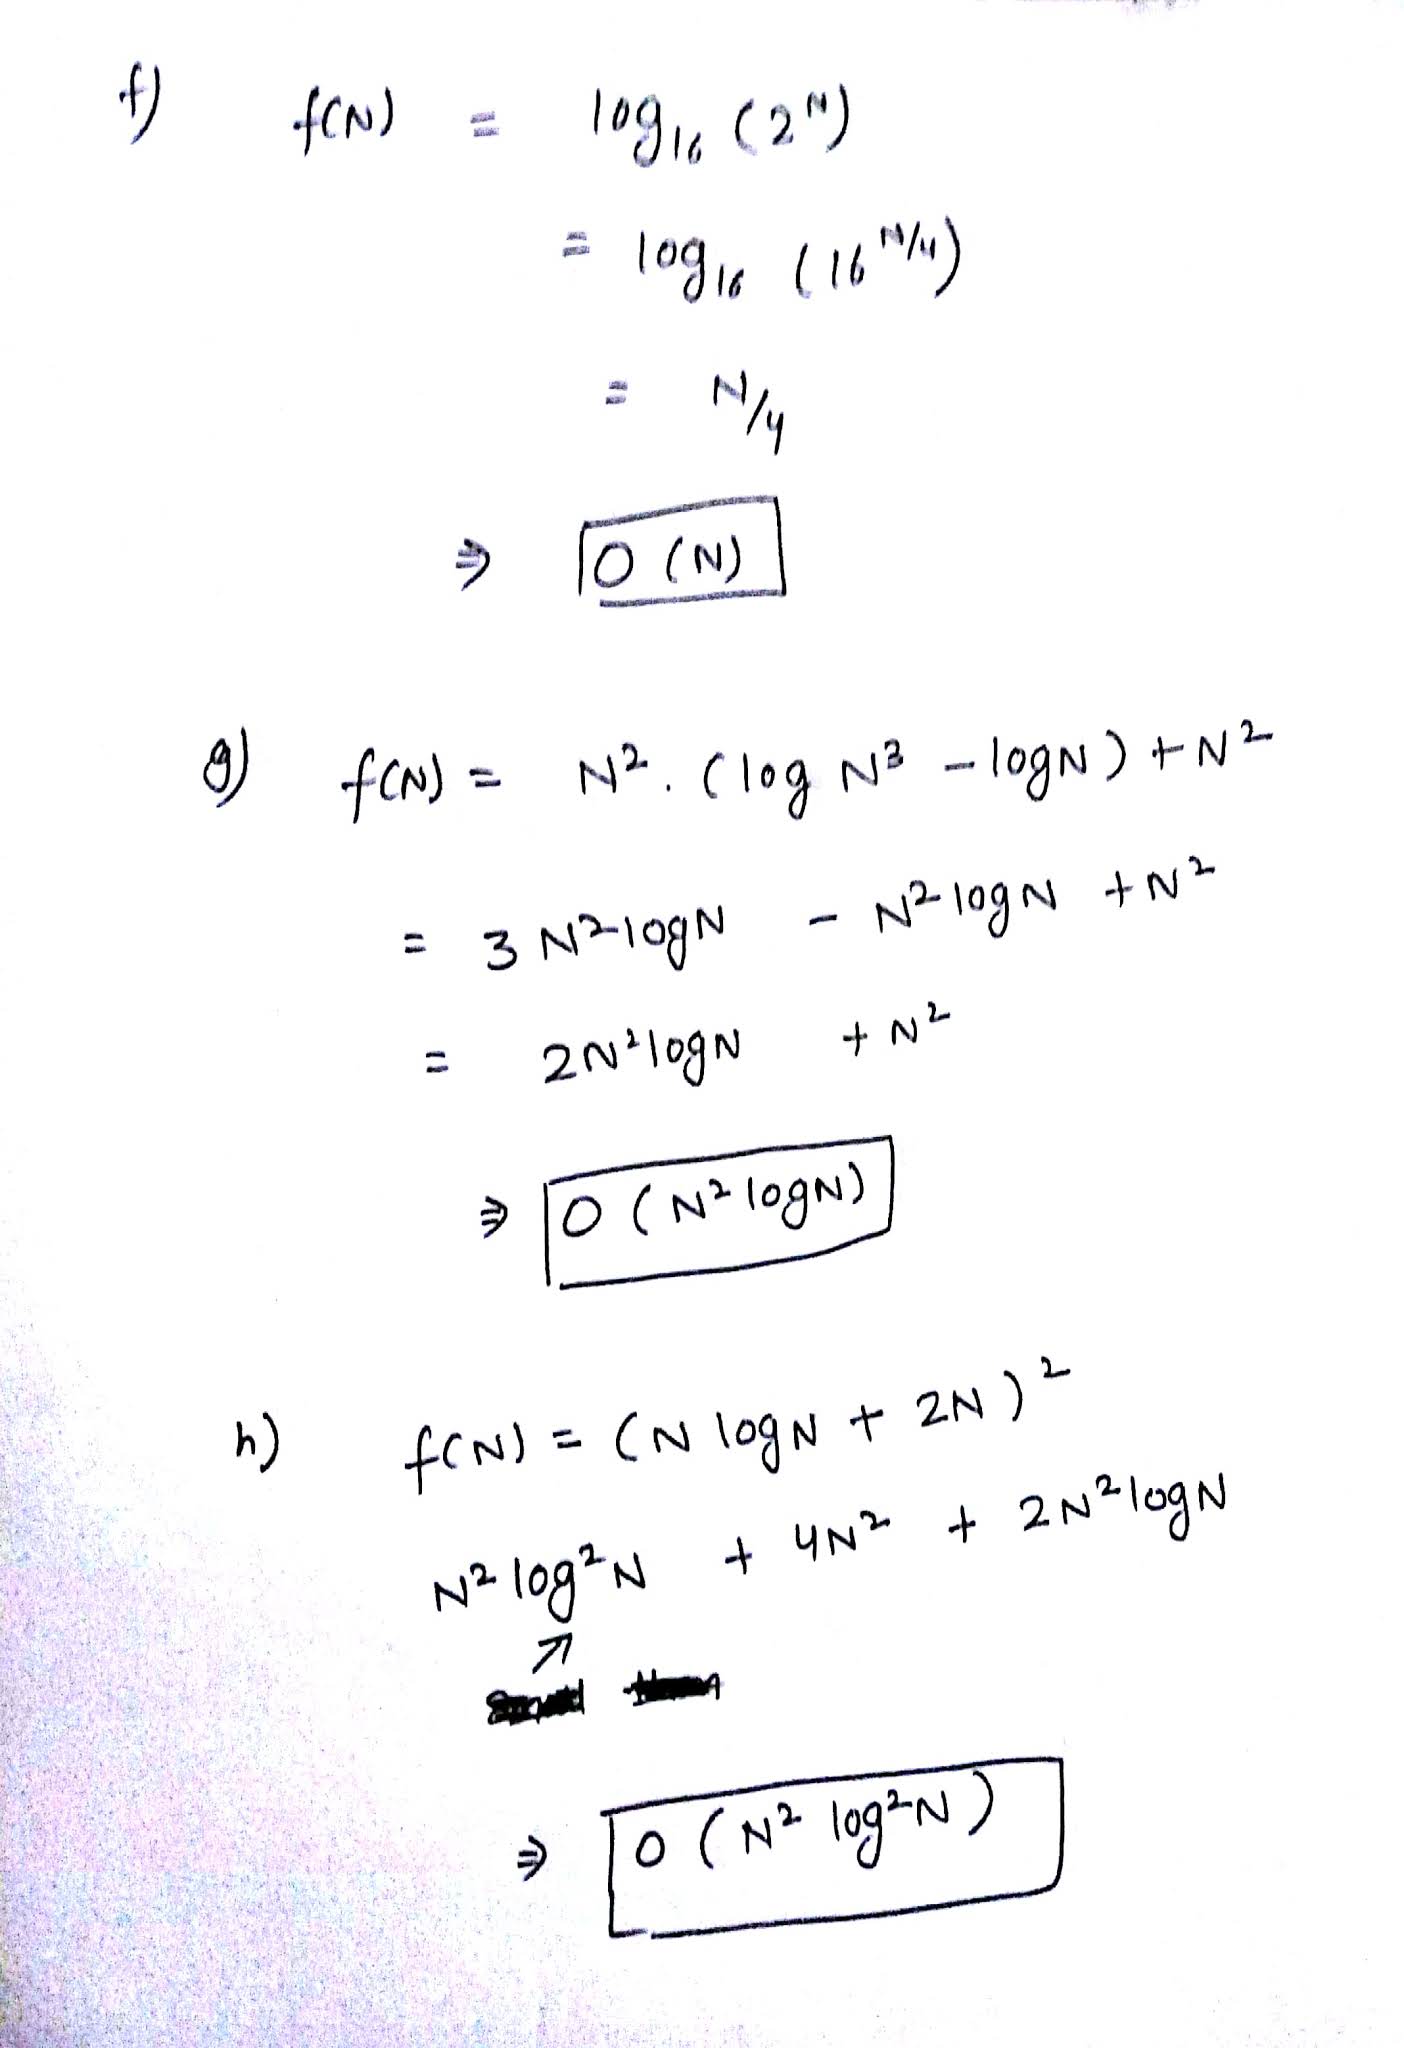 f) f(N) = log₁₆ (2ᴺ)
= log₁₆ (16^N/4)
= N/4
⇒ O (N)
g) f(N) = N². (log N³ – logN) + N²
= 3 N² logN – N² logN + N²
= 2N² logN + N²
⇒ O (N² logN)
h) f(N) = (N logN + 2N)²
N² log²N + 4N² + 2N² logN
↗
⇒ O (N² log²N)